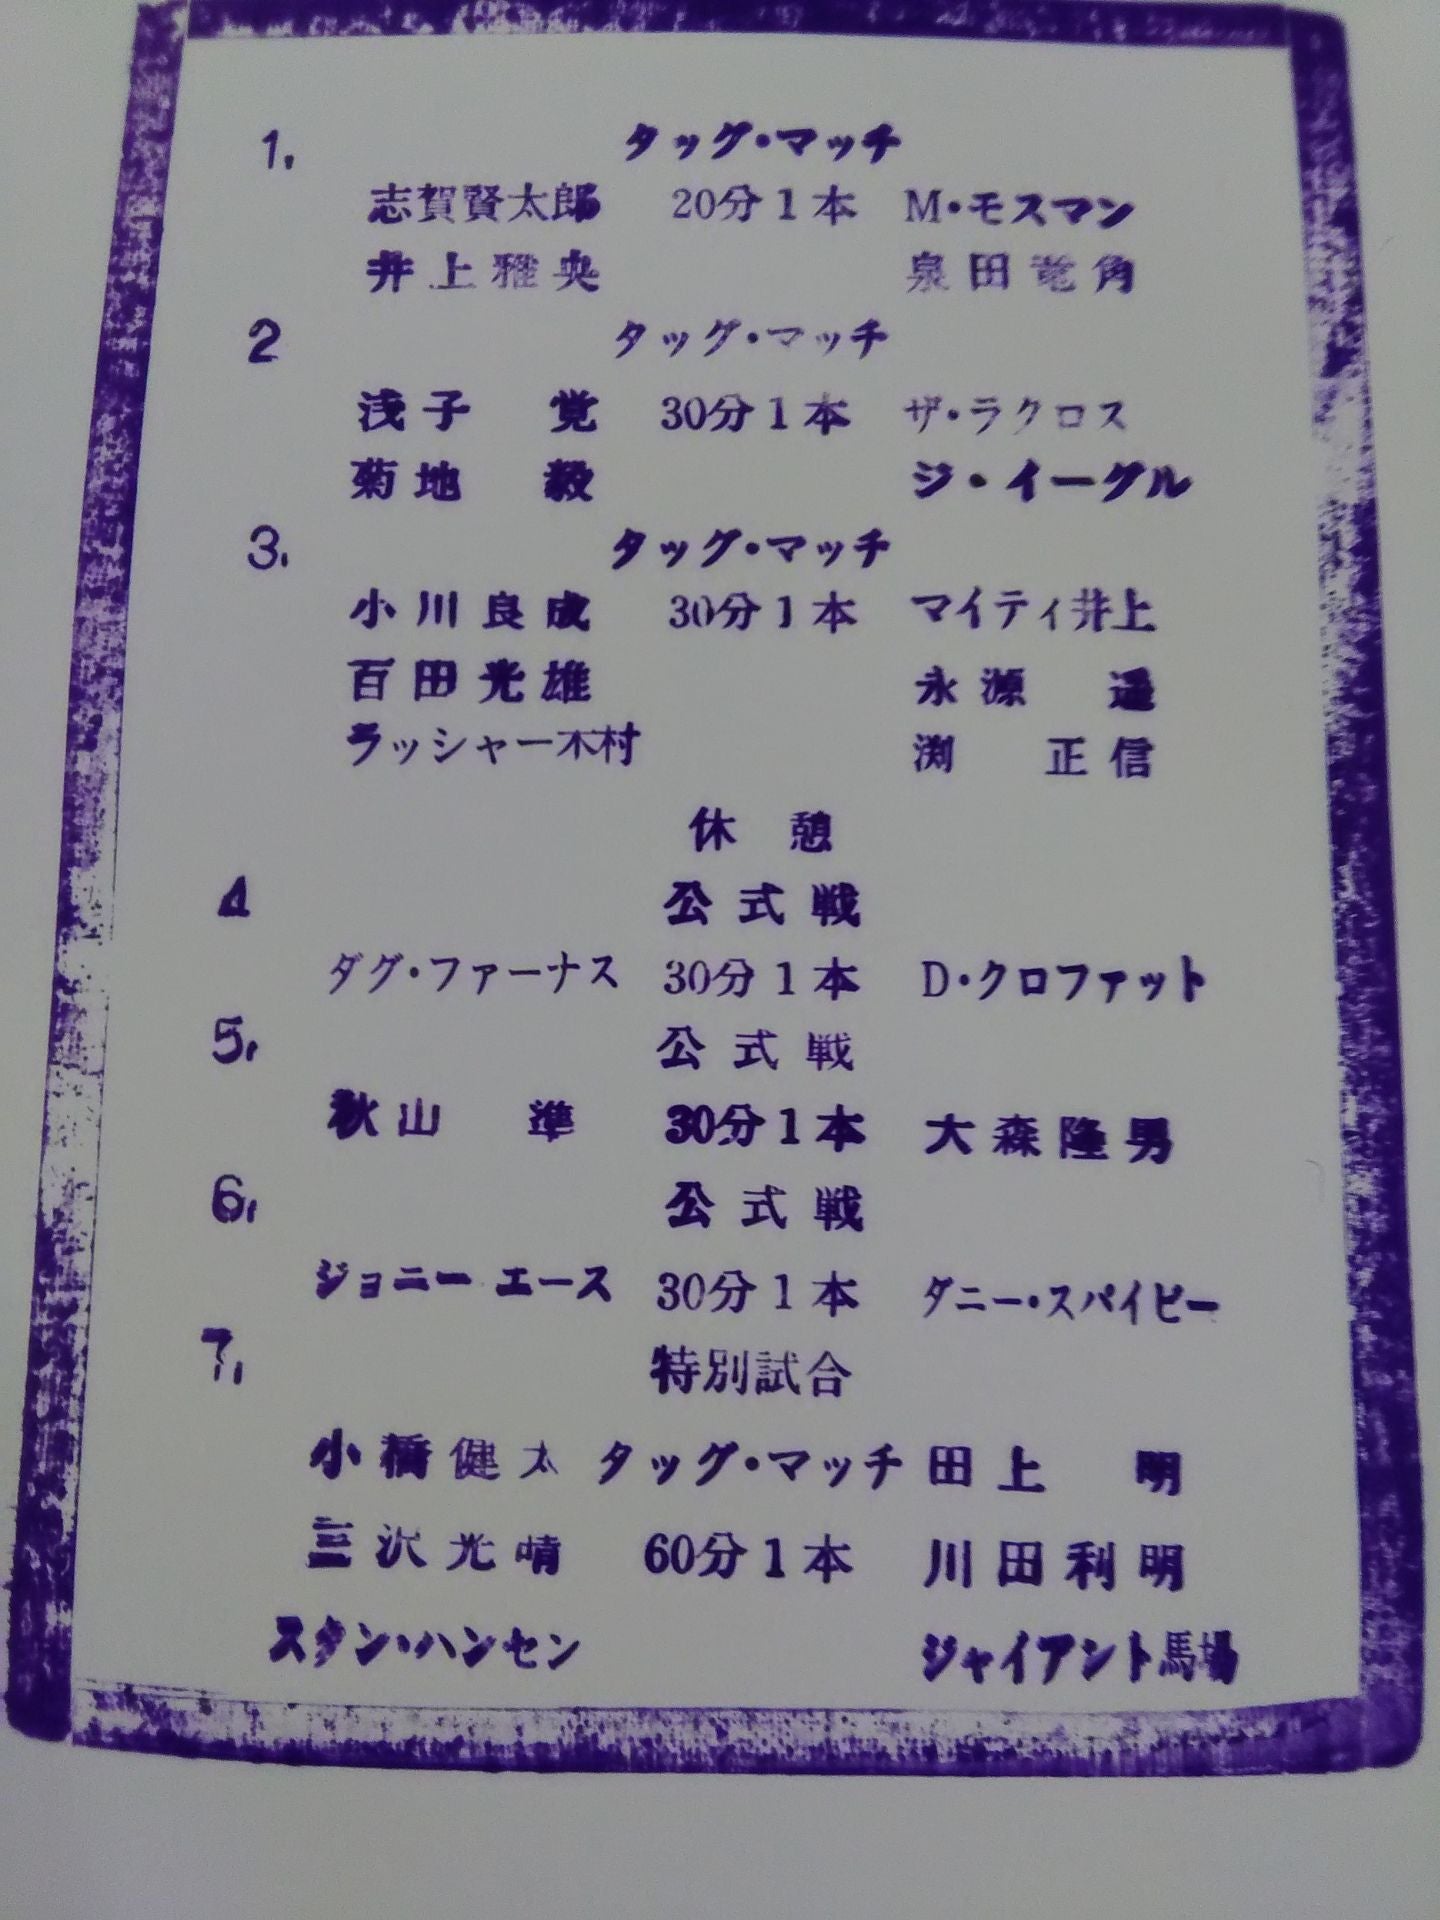 1. タッグ・マッチ
志賀賢太郎 20分1本 M・モスマン
井上雅央 泉田竜角
2 タッグ・マッチ
浅子 覚 30分1本 ザ・ラクロス
菊地 毅 ジ・イーグル
3. タッグ・マッチ
小川良成 30分1本 マイティ井上
百田光雄 永源 遥
ラッシャー木村 渕 正信
休憩
4 公式戦
ダグ・ファーナス 30分1本 D・クロファット
5. 公式戦
秋山 準 30分1本 大森隆男
6. 公式戦
ジョニー エース 30分1本 ダニー・スパイビー
7. 特別試合
小橋健太 タッグ・マッチ 田上 明
三沢光晴 60分1本 川田利明
スタン・ハンセン ジャイアント馬場